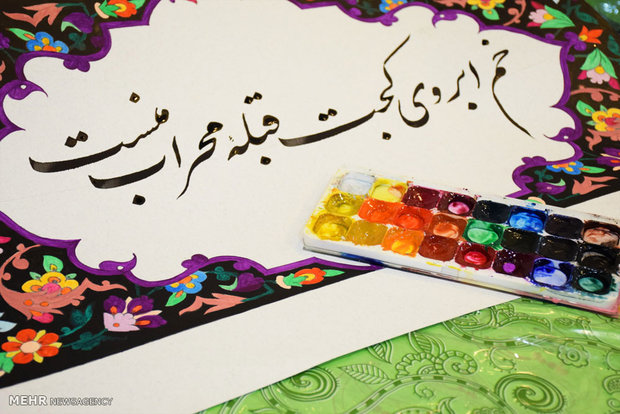 خم ابروی کجت قبلهٔ محراب منست
MEHR NEWSAGENCY